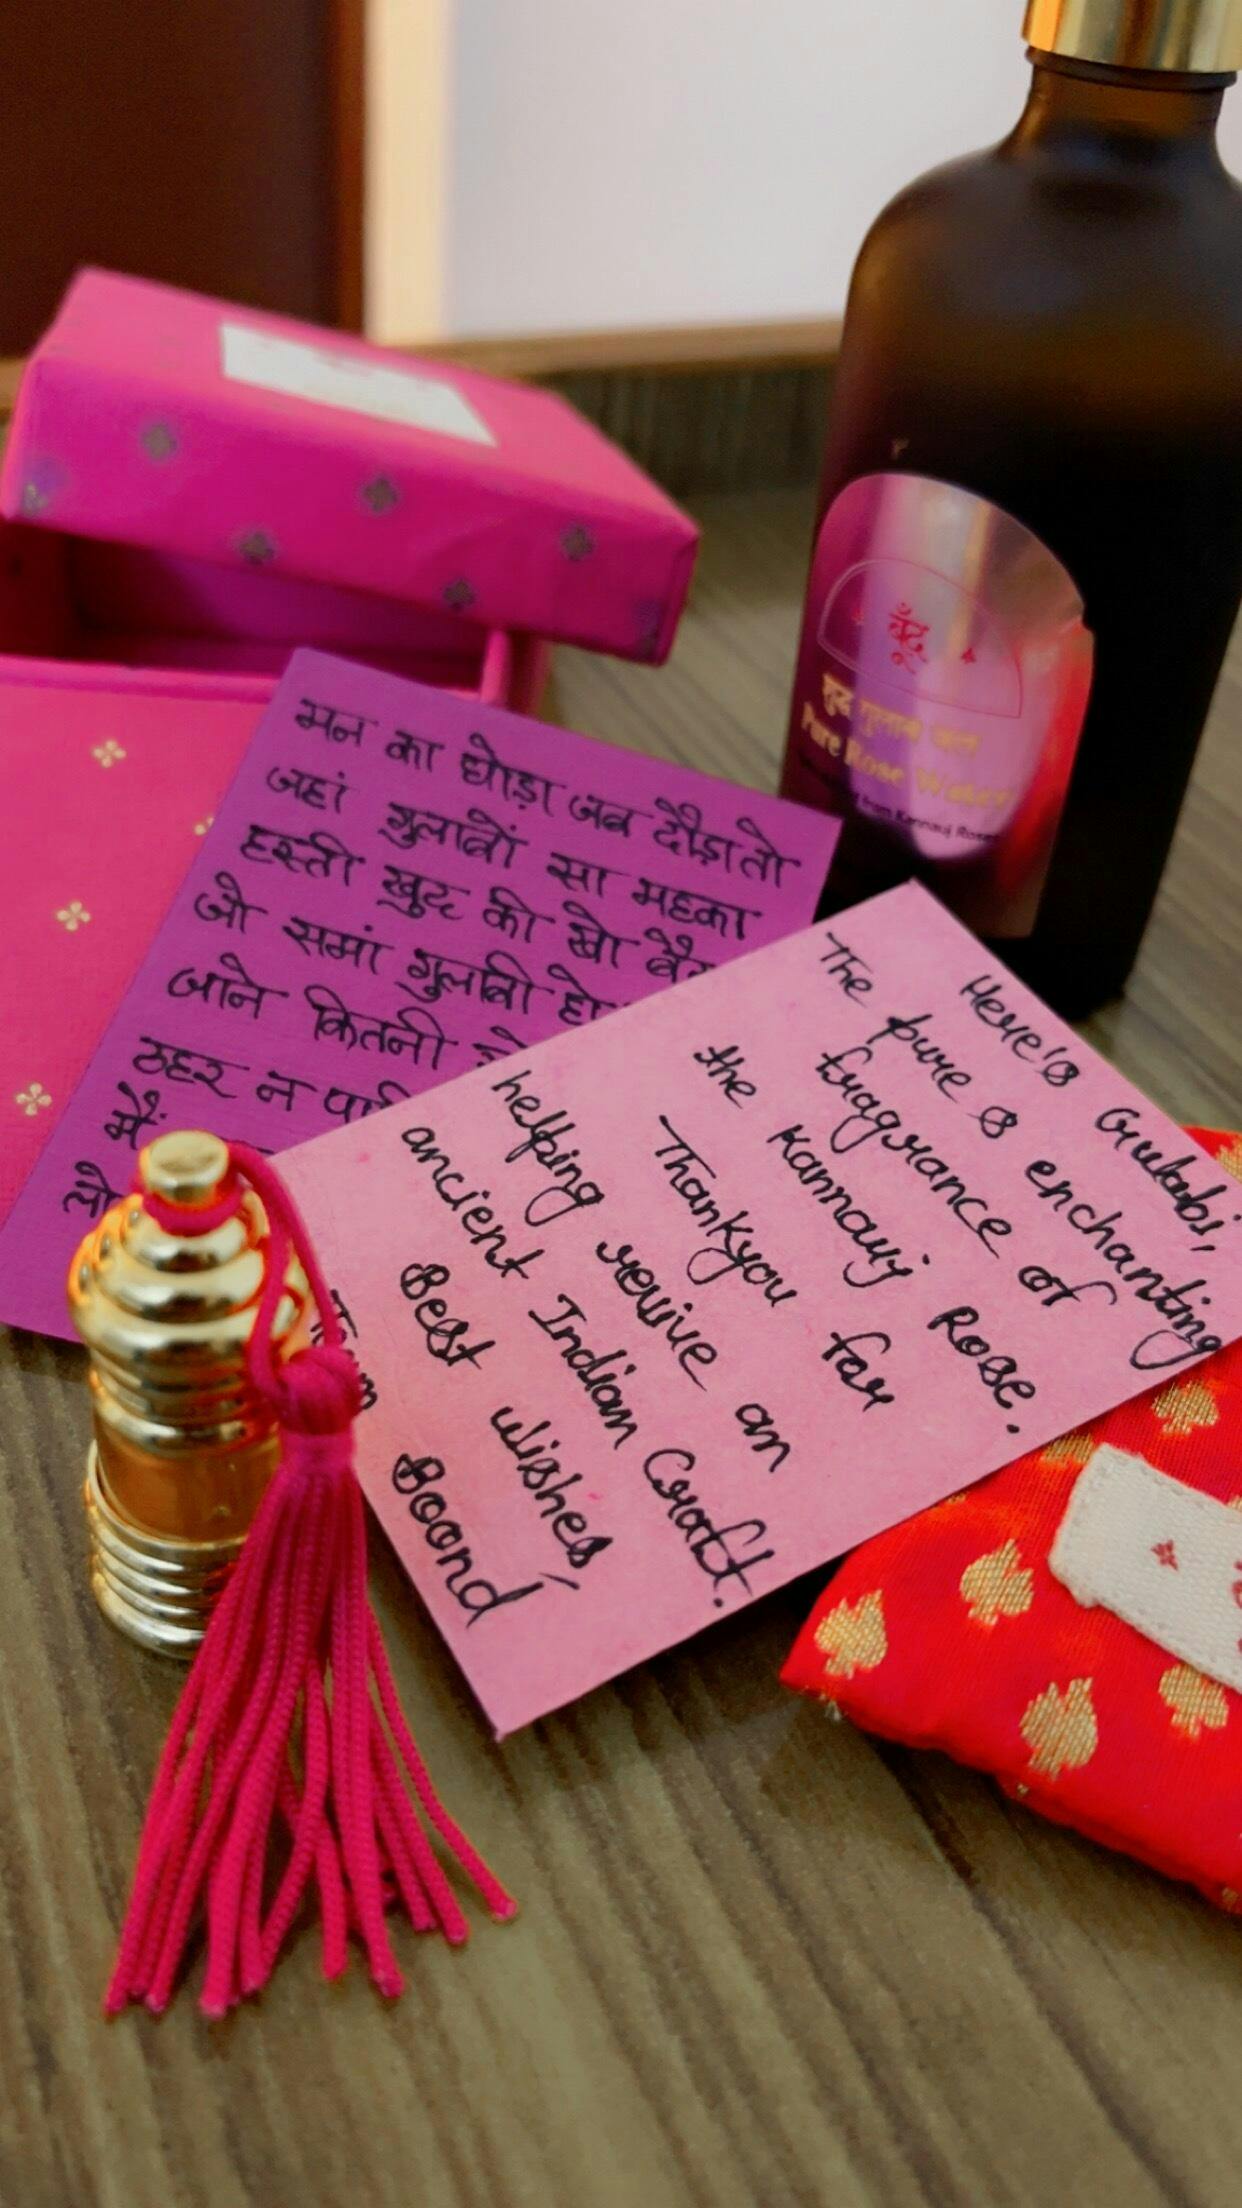 बूंद
शुद्ध गुलाब जल
Pure Rose Water
from Kannauj Roses
मन का घोड़ा जब दौड़ा तो
जहां गुलाबों सा महका
हस्ती खुद की खो
जो समां गुलाबी हो
जाने कितनी
ठहर न
मैं
Here's Gulabi,
The pure & enchanting
fragrance of
the Kannauj Rose.
Thankyou for
helping revive an
ancient Indian Craft.
Best wishes,
Team Boond